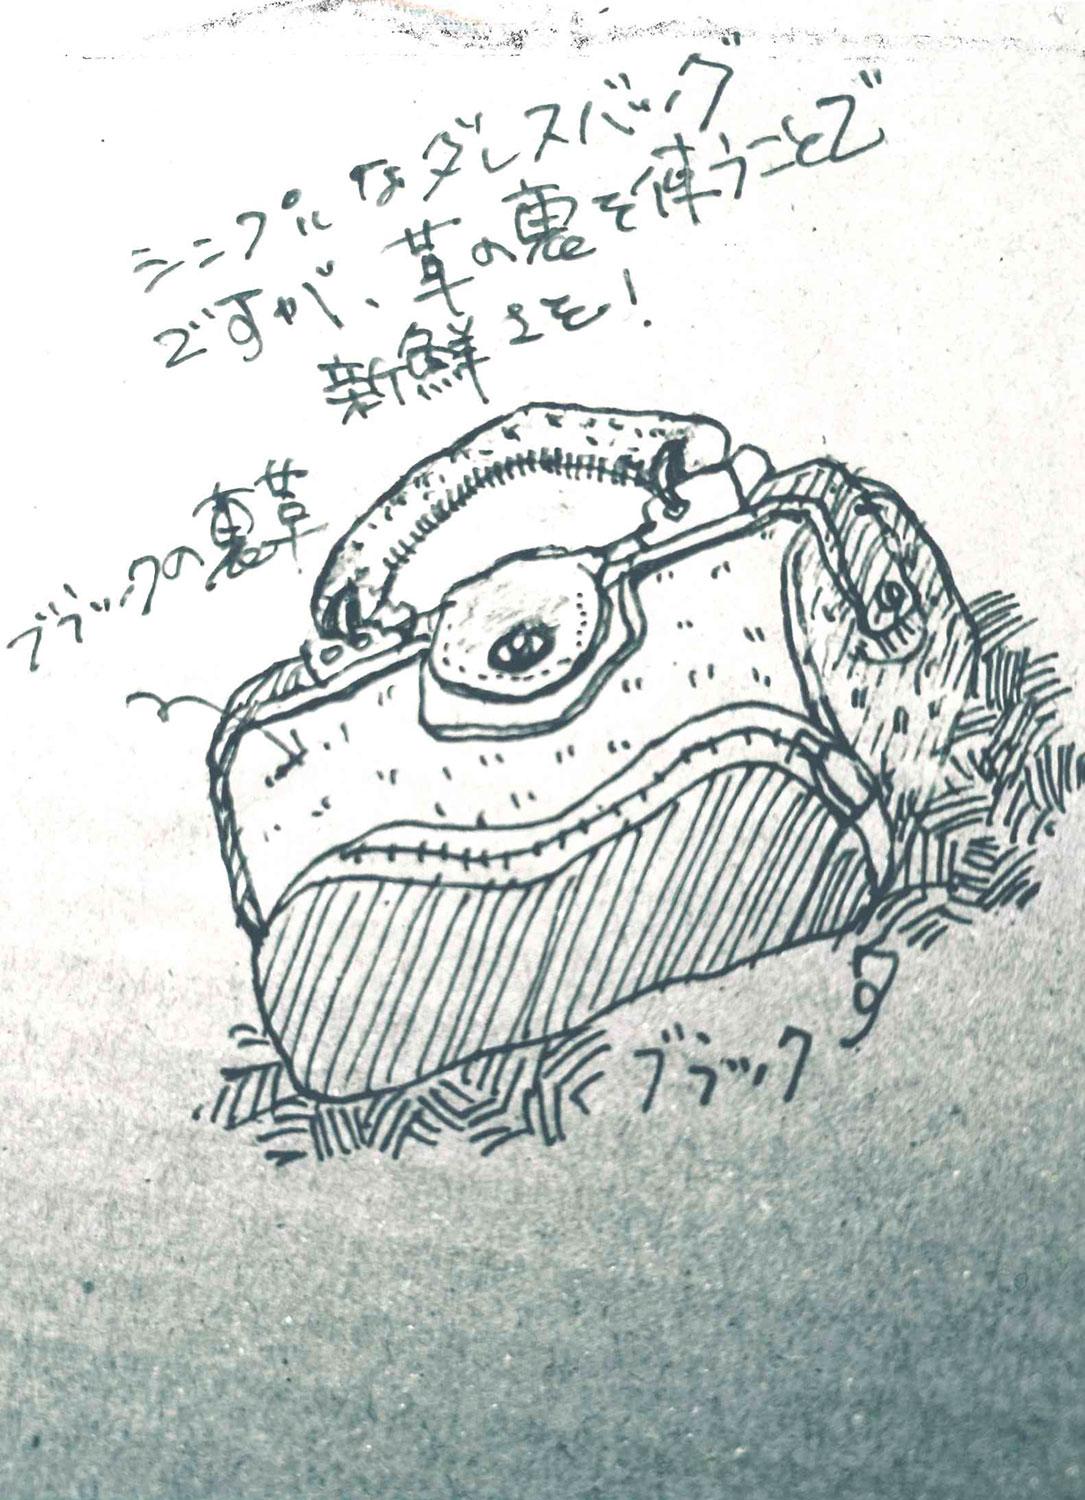 シンプルなダレスバッグ
ですが、革の裏を使うことで
新鮮さを!
ブラックの裏革
ブラック